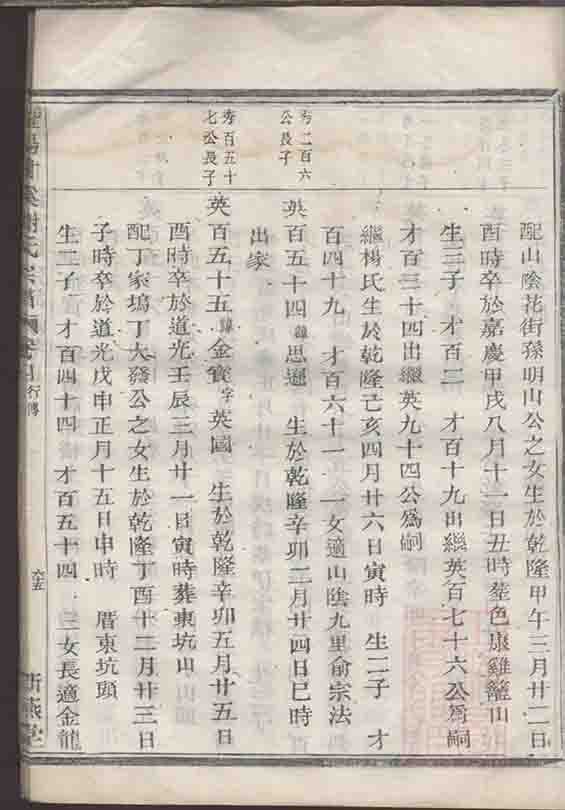 配山陰花街孫明山公之女生於乾隆甲午三月廿二日
酉時卒於嘉慶甲戌八月十一日丑時葬色康雞籠山
生三子 才百二 才百十九出繼英百七十六公爲嗣
才百三十四出繼英九十四公爲嗣
繼楊氏生於乾隆己亥四月廿六日寅時 生二子 才
百四十九 才百六十一 一女適山陰九里俞宗法
秀二百六
公長子
英百五十四諱思遜 生於乾隆辛卯二月廿四日巳時
出家
秀百五十
七公長子
英百五十五諱金寶字英國 生於乾隆辛卯五月廿五日
酉時卒於道光壬辰三月廿一日寅時葬東坑山
配丁家塢丁大發公之女生於乾隆丁酉十二月廿三日
子時卒於道光戊申正月十五日申時 厝東坑頭
生二子 才百四十四 才百五十四 三女長適金龍
謝氏宗譜 行傳 六五